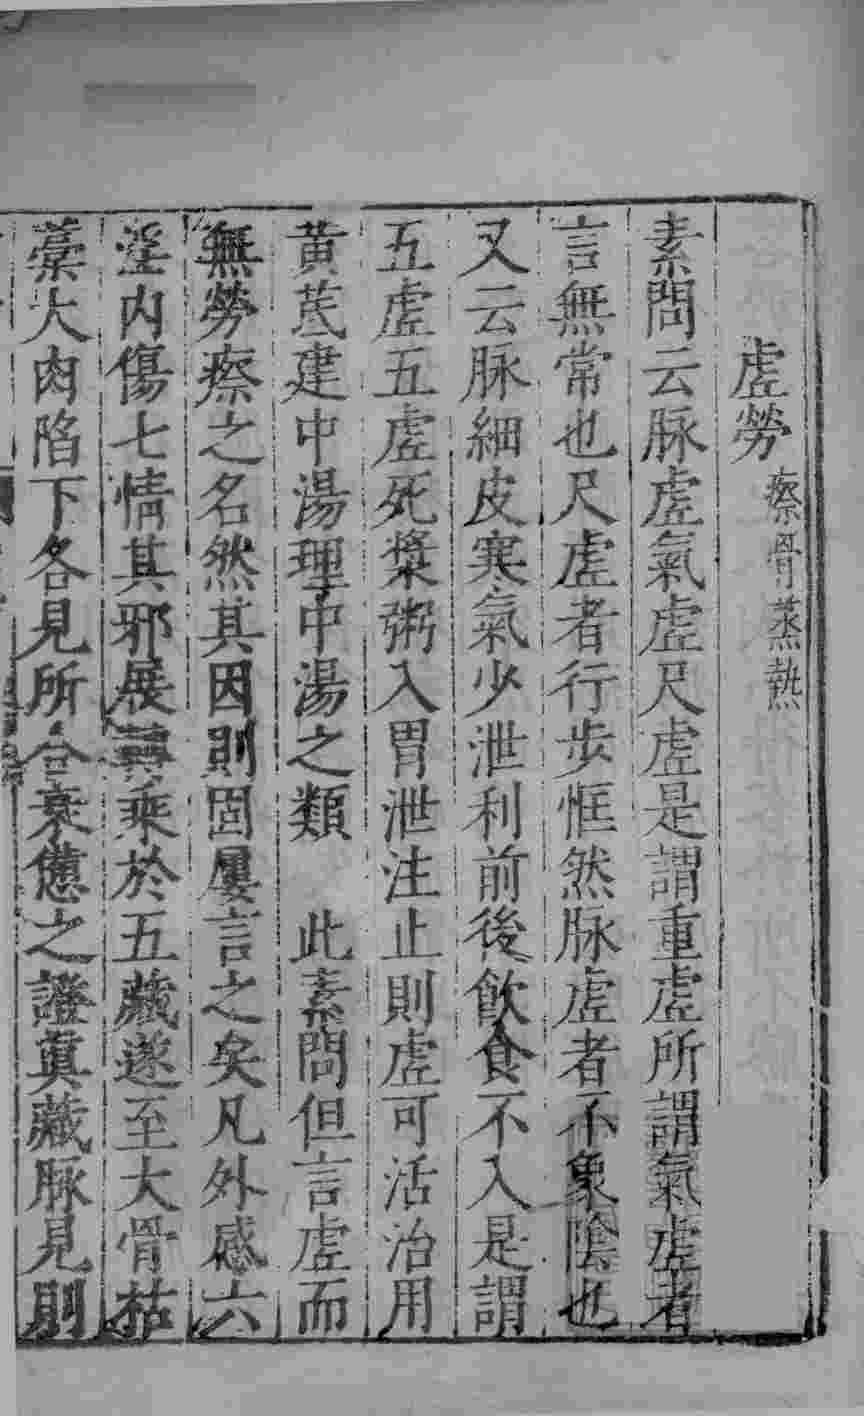 虛勞 瘵骨蒸熱
素問云脉虛氣虛尺虛是謂重虛所謂氣虛者
言無常也尺虛者行步恇然脉虛者不象陰也
又云脉細皮寒氣少泄利前後飲食不入是謂
五虛五虛死漿粥入胃泄注止則虛可活治用
黄芪建中湯理中湯之類　此素問但言虛而
無勞瘵之名然其因則固屢言之矣凡外感六
淫内傷七情其邪展轉乘於五藏遂至大骨枯
藁大肉陷下各見所合衰憊之證真藏脉見則